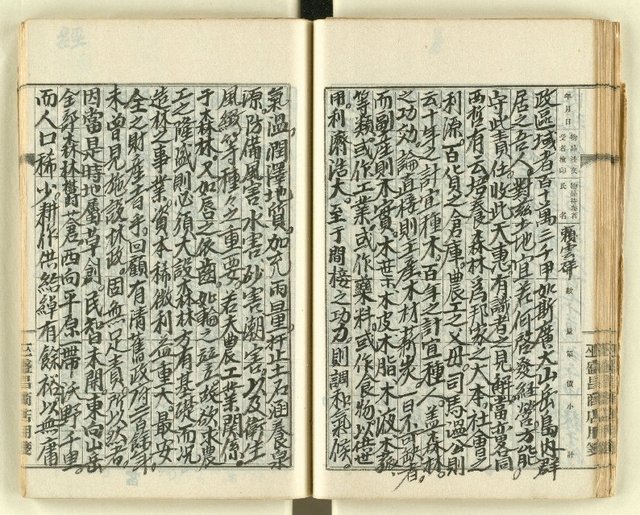 政區域者百十萬三千甲如斯廣大山岳富內群
居之吾人對茲土地宜若何啓發經營方能
守此責任收此天惠有識者之見解當畧同
西哲有云培養森林為邦家之大本社會之
利源百貨之倉庫農工之父母司馬溫公則
云十年之計宜種木百年之計宜種人蓋森林
之功効論直接則主產木材薪炭日不可缺者
而副產則木實木葉木皮木脂木液木
等類或作工業或作藥料或作食物以供世
用利濟浩大至于間接之功力則調和氣候
氣溫潤澤地質加充雨量扞止土石涵養泉
源防備風害水害砂害潮害以及衛生
風緻等種々之重要若夫農工業關係
于森林又如唇之依齒如輪之並立故欲求農
工之隆盛則必須大設森林方有基礎而況
造林之事業資本稀微利益重大最安
全之財產者乎回顧有清舊政府二百餘年
未曾見施設林政固無足責所以然者
因當是時地屬草創民智未開東向山岳
全部森林鬱蒼西向平原一帶沃野千里
而人口稀少耕作供給綽有餘裕以無庸